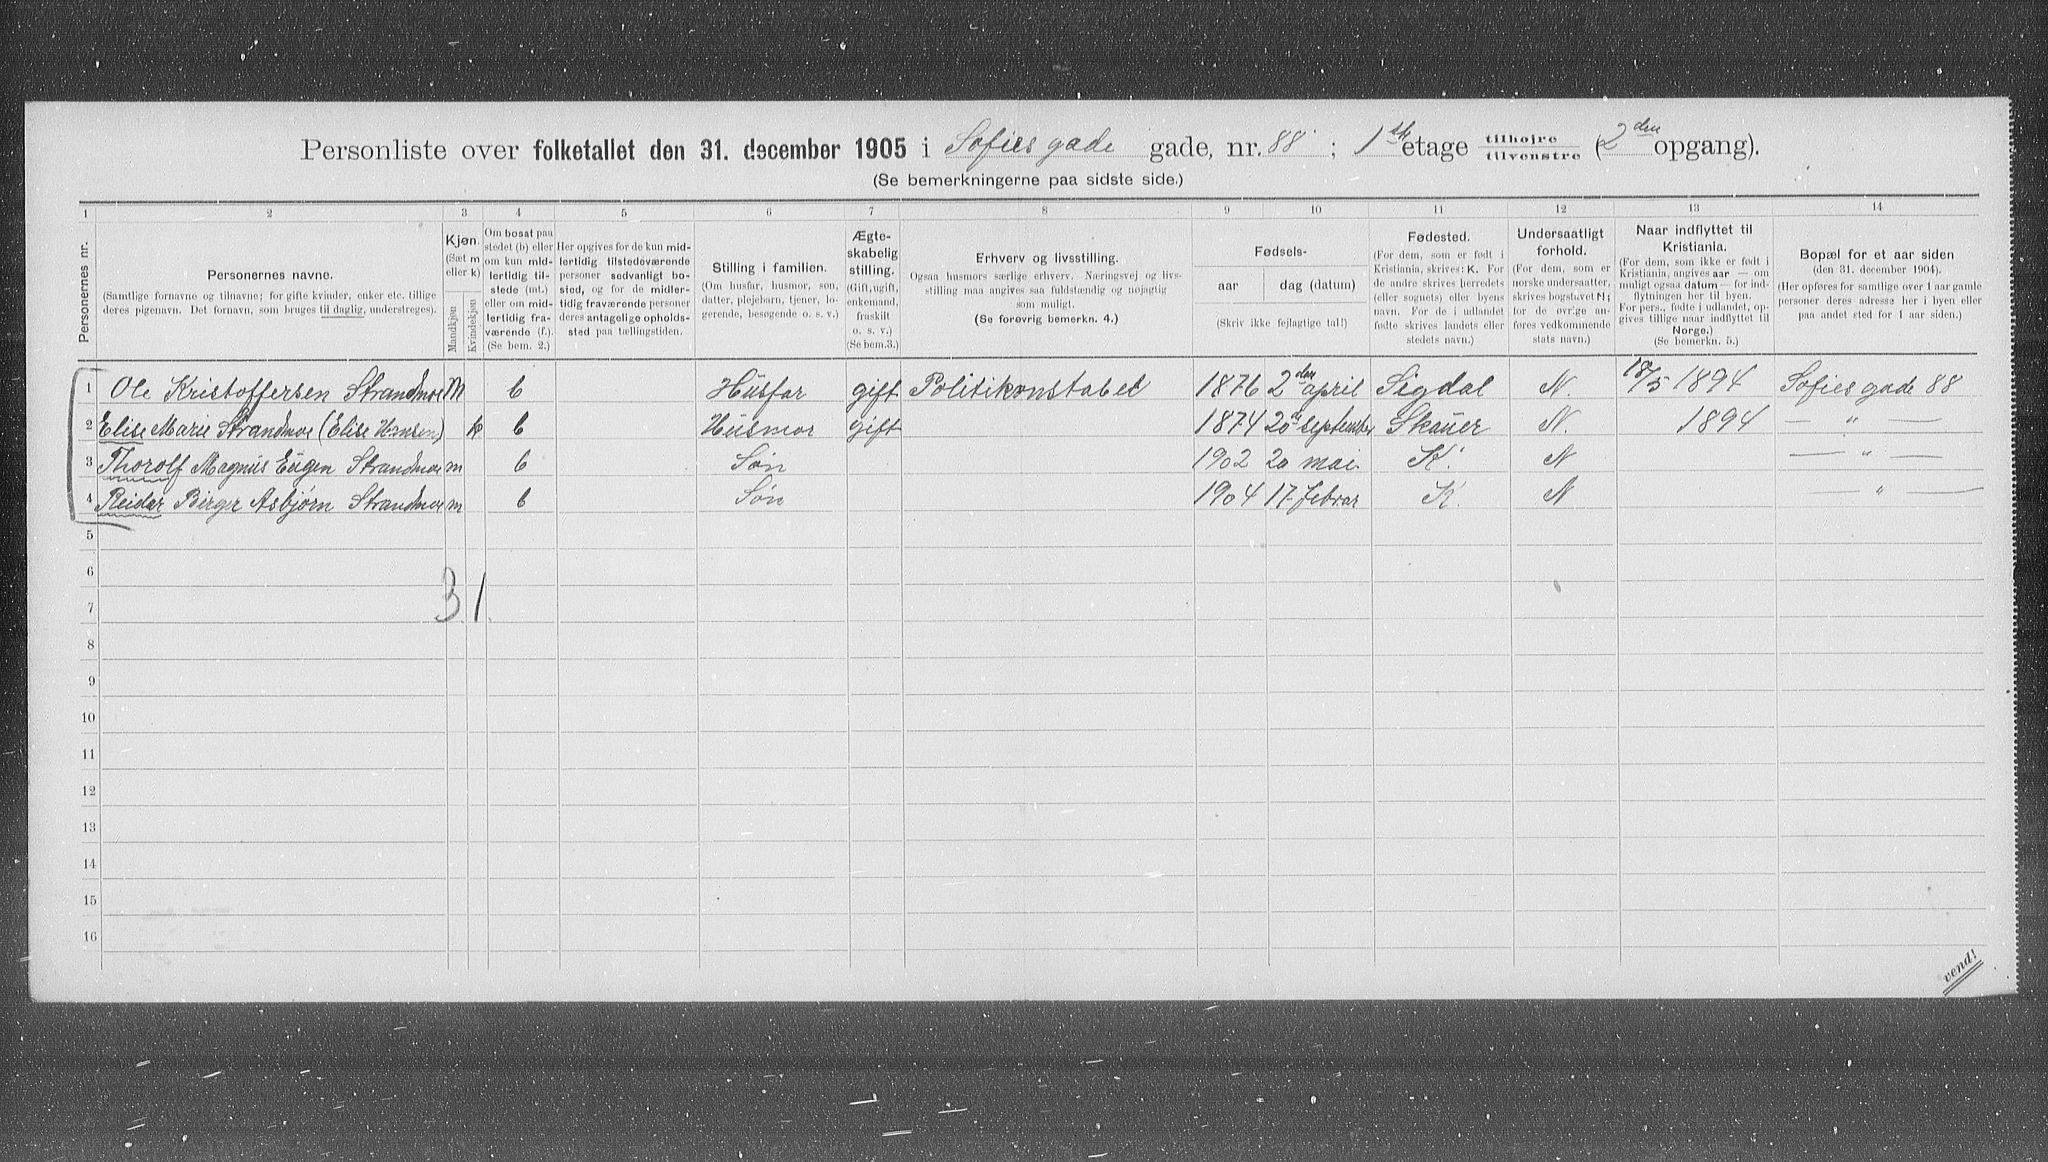 Personliste over folketallet den 31. december 1905 i Sofies gade gade, nr. 88 ; 1ste etage tilhøjre tilvenstre (2den opgang).
(Se bemerkningerne paa sidste side.)
1 2 3 4 5 6 7 8 9 10 11 12 13 14
Personernes nr.
Personernes navne.
(Samtlige fornavne og tilnavne; for gifte kvinder, enker etc. tillige
deres pigenavn. Det fornavn, som bruges til daglig, understreges).
Kjøn.
(Sæt m
eller k)
Mandkjøn
Kvindekjøn
Om bosat paa
stedet (b) eller
om kun midlertidig tilstede (mt.)
eller om midlertidig fraværende (f.).
(Se bem. 2.)
Her opgives for de kun midlertidig tilstedeværende
personer sedvanligt bosted, og for de midlertidig fraværende personer
deres antagelige opholdssted paa tællingstiden.
Stilling i familien.
(Om husfar, husmor, søn,
datter, plejebarn, tjener, logerende, besøgende o. s. v.)
Ægteskabelig
stilling.
(Gift, ugift,
enkemand,
fraskilt
o. s. v.)
(Se bem.3.)
Erhverv og livsstilling.
Ogsaa husmors særlige erhverv. Næringsvej og livsstilling maa angives saa fuldstændig og nøjagtig
som muligt.
(Se forøvrig bemerkn. 4.)
Fødsels-
aar
dag (datum)
(Skriv ikke fejlagtige tal!)
Fødested.
(For dem, som er født i
Kristiania, skrives: K. For
de andre skrives herredets
(eller sognets) eller byens
navn. For de i udlandet
fødte skrives landets eller
stedets navn.)
Undersaatligt
forhold.
(For dem, som er
norske undersaatter,
skrives bogstavet N;
for de øvrige anføres vedkommende
stats navn.)
Naar indflyttet til
Kristiania.
(For dem, som ikke er født i
Kristiania, angives aar — om
muligt ogsaa datum — for indflytningen her til byen.
For pers., fødte i udlandet, opgives tillige naar indflyttet til
Norge.)
(Se bemerkn. 5.)
Bopæl for et aar siden
(den 31. december 1904).
(Her opføres for samtlige over 1 aar gamle
personer deres adresse her i byen eller
paa andet sted for 1 aar siden.)
1 Ole Kristoffersen Strandmoe M b Husfar gift Politikonstabel 1876 2den april Sigdal N. 18/5 1894 Sofies gade 88
2 Elise Marie Strandmoe (Elise Hansen) k b Husmor gift 1874 20de september Skauer N. 1894 — " —
3 Thorolf Magnus Eugen Strandmoe m b Søn 1902 20 mai. K. N — " —
4 Reidar Birger Asbjørn Strandmoe m b Søn 1904 17. Februar K. N — " —
5
6
3 1
7
8
9
10
11
12
13
14
15
16
vend!